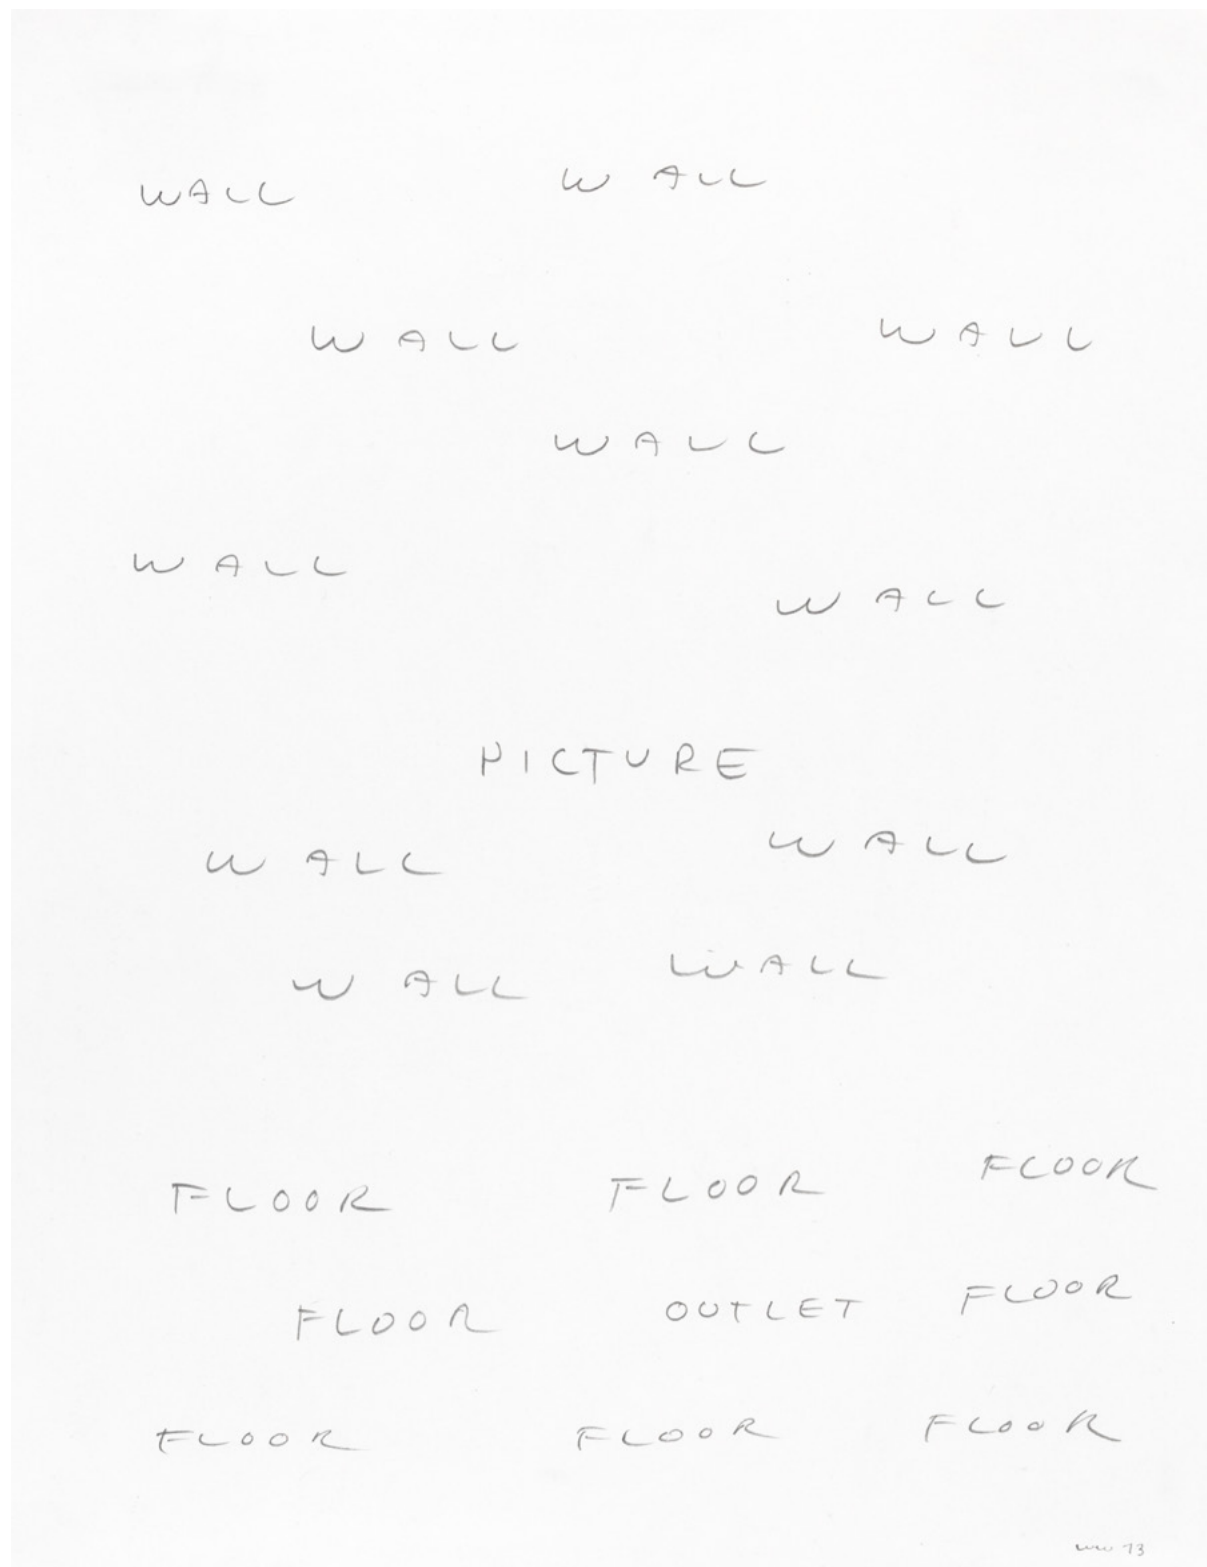 WALL W ALL
WALL WALL
WALL
WALL
WALL
PICTURE
WALL WALL
WALL WALL
FLOOR FLOOR FLOOR
FLOOR OUTLET FLOOR
FLOOR FLOOR FLOOR